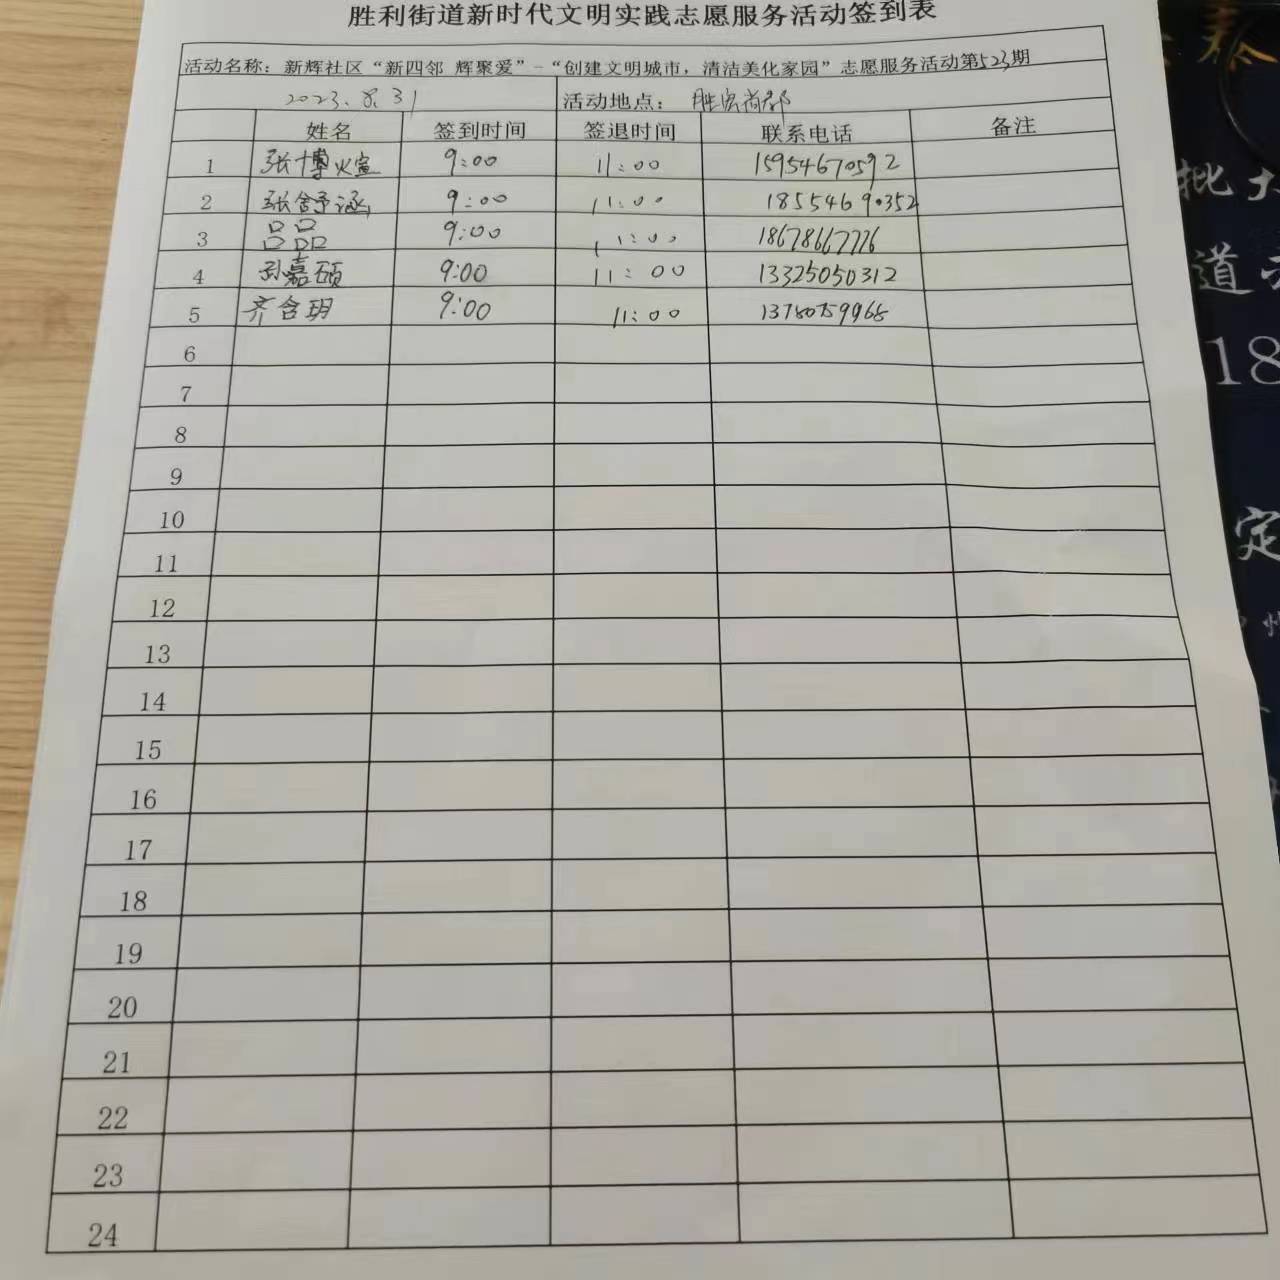 胜利街道新时代文明实践志愿服务活动签到表
活动名称：新辉社区“新四邻 辉聚爱”-“创建文明城市，清洁美化家园”志愿服务活动第523期
2023.8.31 活动地点：胜宏尚都
姓名 签到时间 签退时间 联系电话 备注
1 张博煊 9:00 11:00 15954670592
2 张舒涵 9:00 11:00 18554690352
3 吕品 9:00 11:00 18678667776
4 孙嘉硕 9:00 11:00 13325050312
5 齐含玥 9:00 11:00
6
7
8
9
10
11
12
13
14
15
16
17
18
19
20
21
22
23
24
批
道
18
定